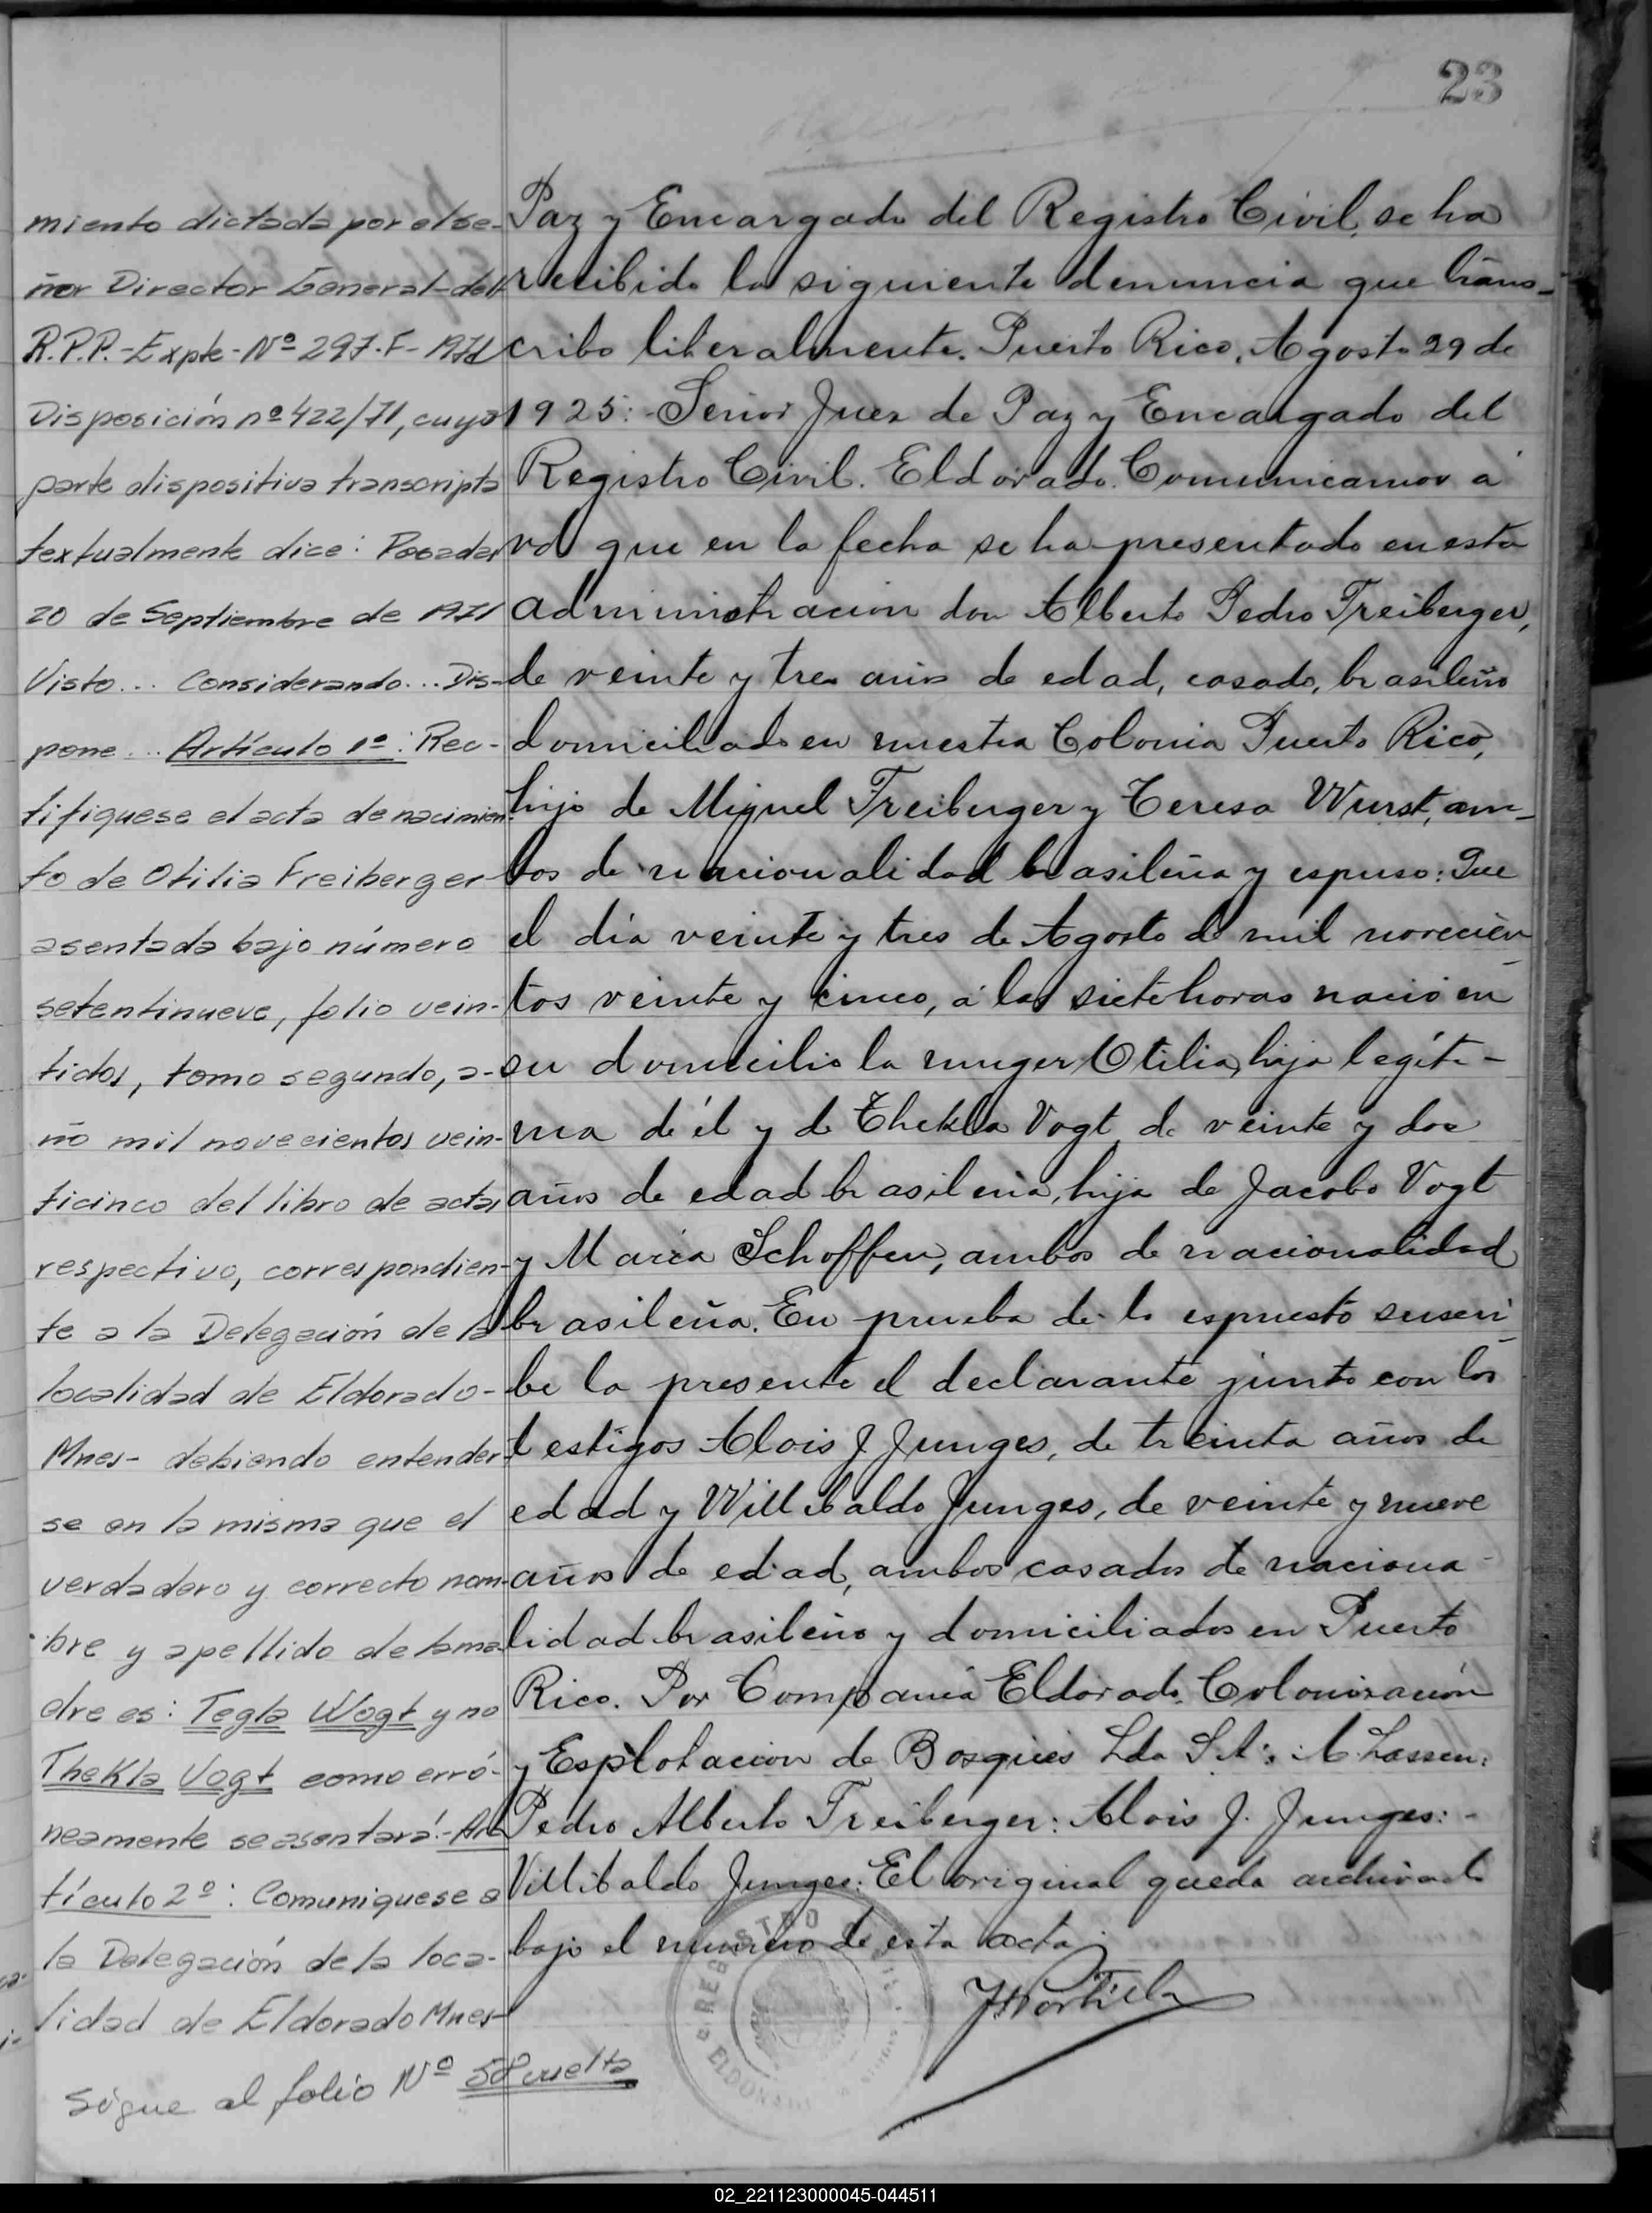 23
miento dictada por el se-
ñor Director General del
R.P.P.-Expte-Nº 297-F-1971
Disposición nº 422/71, cuya
parte dispositiva transcripta
textualmente dice: Posadas
20 de Septiembre de 1971
Visto... Considerando... Dis-
pone... Artículo 1º: Rec-
tifiquese el acta de nacimien-
to de Otilia Freiberger
asentada bajo número
setentinueve, folio vein-
tidos, tomo segundo, a-
ño mil novecientos vein-
ticinco del libro de actas
respectivo, correspondien-
te a la Delegación de la
localidad de Eldorado-
Mnes- debiendo entender-
se en la misma que el
verdadero y correcto nom-
bre y apellido de la ma-
dre es: Tegla Wogt y no
Thekla Vogt como erró-
neamente se asentará.- Ar-
tículo 2º: Comuniquese a
la Delegación de la loca-
lidad de Eldorado Mnes-
Sigue al folio Nº 58 vuelta
Paz y Encargado del Registro Civil, se ha
recibido la siguiente denuncia que trans-
cribo literalmente. Puerto Rico, Agosto 29 de
1925:- Señor Juez de Paz y Encargado del
Registro Civil. Eldorado. Comunicamos á
vd que en la fecha se ha presentado en esta
administracion don Alberto Pedro Treiberger,
de veinte y tres años de edad, casado, brasileño
domiciliado en nuestra Colonia Puerto Rico,
hijo de Miguel Treiberger y Teresa Wurst, am-
bos de nacionalidad brasileña y espuso: Que
el día veinte y tres de Agosto de mil novecien-
tos veinte y cinco, á las siete horas nació en
su domicilio la muger Otilia, hija legíti-
ma de él y de Thekla Vogt de veinte y dos
años de edad brasileña, hija de Jacobo Vogt
y María Schoffen, ambos de nacionalidad
brasileña. En prueba de lo espuesto suscri-
be la presente el declarante junto con los
testigos Alois J Junges, de treinta años de
edad y Willibaldo Junges, de veinte y nueve
años de edad, ambos casados de naciona-
lidad brasileño y domiciliados en Puerto
Rico. Por Compañia Eldorado, Colonización
y Esplotacion de Bosques Lda S.A: A Lassen:
Pedro Alberto Treiberger: Alois J. Junges:-
Villibaldo Junges: El original queda archivado
bajo el numero de esta acta.
REGISTRO
ELDORADO
02_221123000045-044511